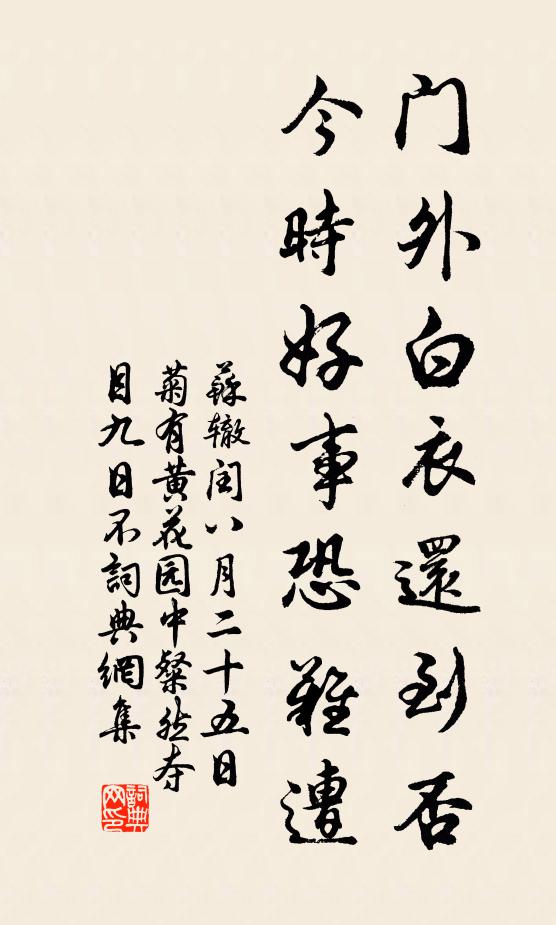 门外白衣還到否
今時好事恐難遭
蘇辙闰八月二十五日
菊有黄花园中粲然夺
目九日不詞典網集
詞典
网印